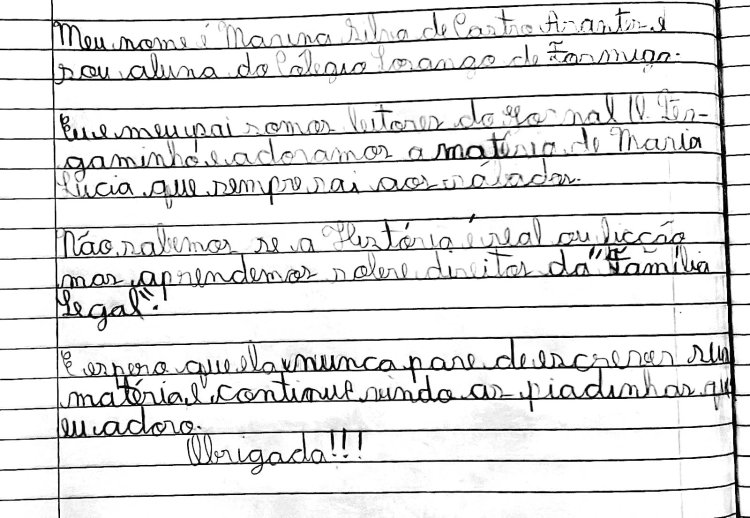 Meu nome é Marina Silva de Castro Arantes e
sou aluna do Colégio Losango de Formiga.
Eu e meu pai somos leitores do Jornal O Per-
gaminho e adoramos a matéria de Maria
Lúcia que sempre sai aos sábados.
Não sabemos se a História é real ou ficção
mas aprendemos sobre direitos da "Família
Legal"!
E espero que ela nunca pare de escrever sua
matéria e continue vindo as piadinhas que
eu adoro.
Obrigada!!!